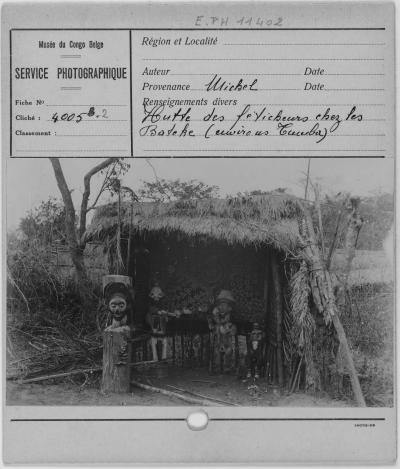 E.PH 11402
Musée du Congo Belge
SERVICE PHOTOGRAPHIQUE
Fiche No
Cliché : 4005 B.2
Classement :
Région et Localité
Auteur Date
Provenance Michel Date
Renseignements divers
Hutte des féticheurs chez les
Bateke (environs Tumba)